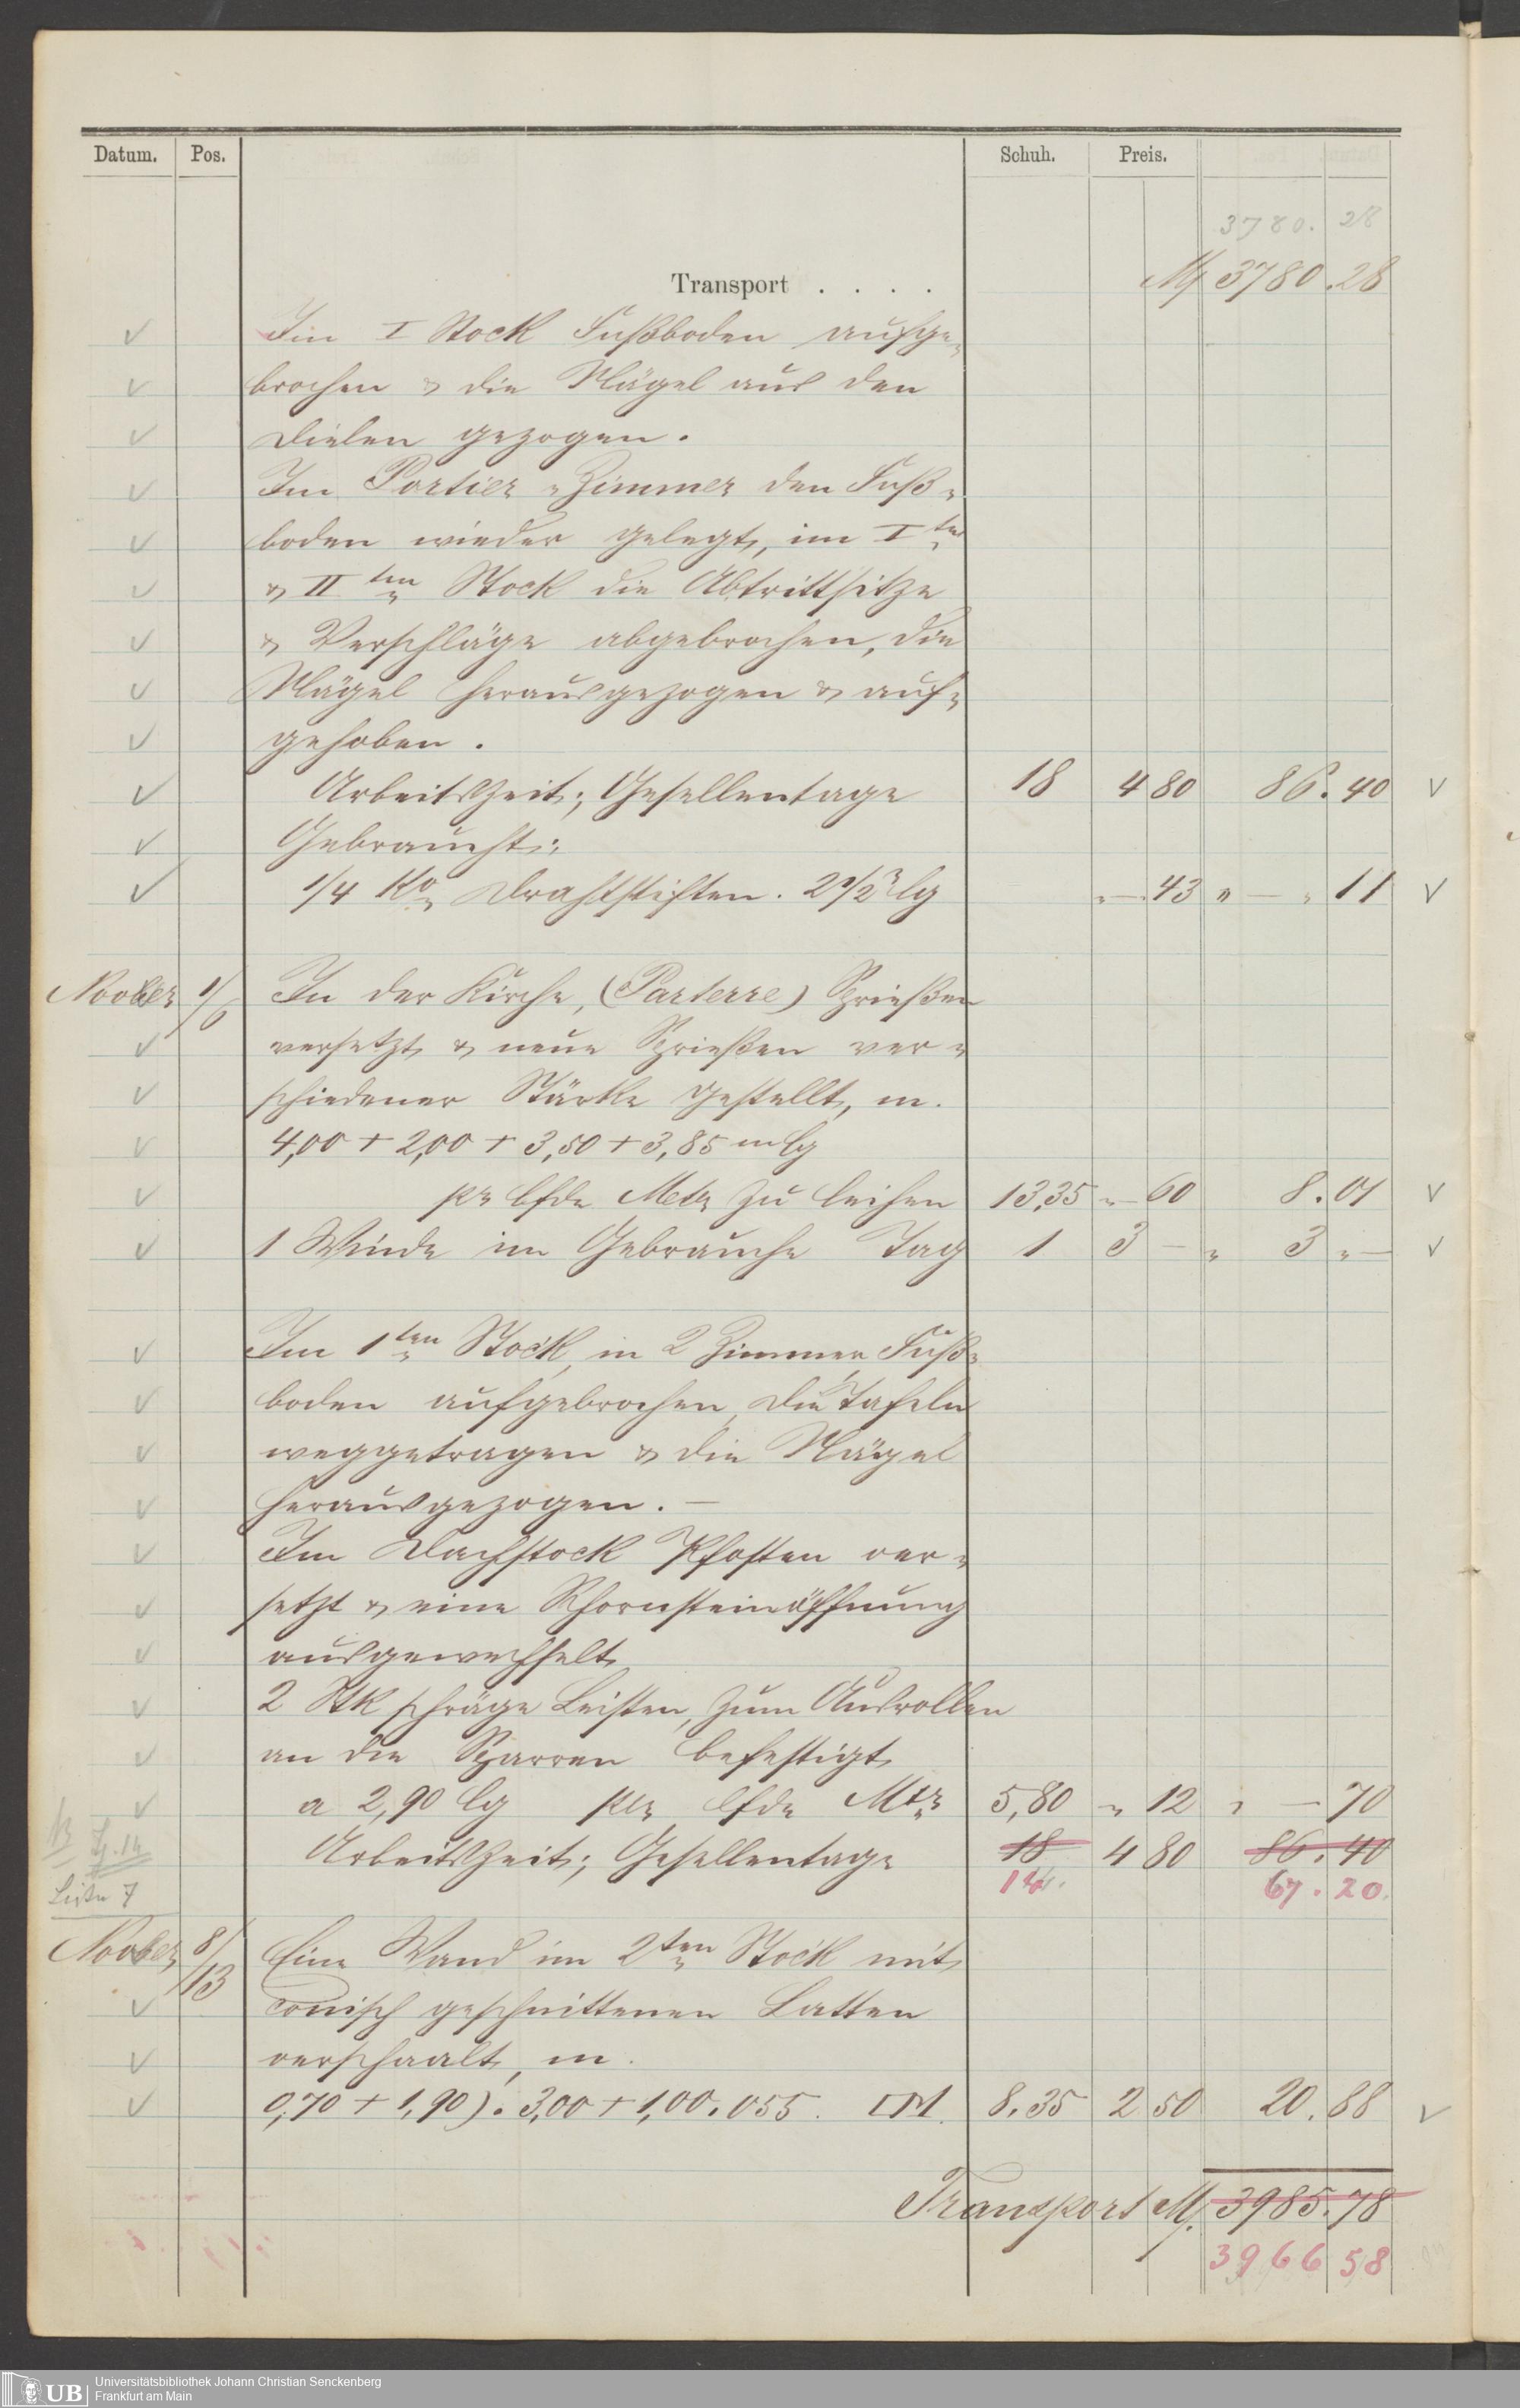 Datum. Pos. Schuh. Preis.
3780. 28
Transport . . . . M 3780.28
Im I Stock Fußboden aufge-
brochen & die Nägel aus den
Dielen gezogen.
Im Portier-Zimmer den Fuß-
boden wieder gelegt, im I ten
& II ten Stock die Abtrittsitze
& Verschläge abgebrochen, die
Nägel herausgezogen & auf-
gehoben.
Arbeitszeit; Gesellentage 18 4 80 86.40
Gebraucht:
1/4 Ko Drahtstiften. 2 1/2" lg " — 43 " — " 11
Novber 1/6 In der Kirche, (Parterre) Sprießen
versetzt & neue Sprießen ver-
schiedener Stärke gestellt, m.
4,00 + 2,00 + 3,50 + 3,85 m lg
pr lfde Metr zu leihen 13,35 " — 60 8.01
1 Winde im Gebrauche Tag 1 3 — " 3 " —
Im 1ten Stock, in 2 Zimmer, Fuß-
boden aufgebrochen, die Tafeln
weggetragen & die Nägel
herausgezogen. —
Im Dachstock Pfosten ver-
setzt & eine Schornsteinöffnung
ausgewechselt
2 Stk schräge Leisten, zum Ausrollen
an die Sparren befestigt
a 2,90 lg per lfde Mtr 5,80 " 12 " — 70
Arbeitszeit; Gesellentage 18 4 80 86.40
14. 67.20.
Liste 7
Novber 8/13 Eine Wand im 2ten Stock mit
conisch geschnittenen Latten
verschaalt, m.
0,70 + 1,90). 3,00 + 1,00. 055. □M. 8.35 2 50 20.88
Transport M. 3985.78
3966 58
UB Universitätsbibliothek Johann Christian Senckenberg
Frankfurt am Main